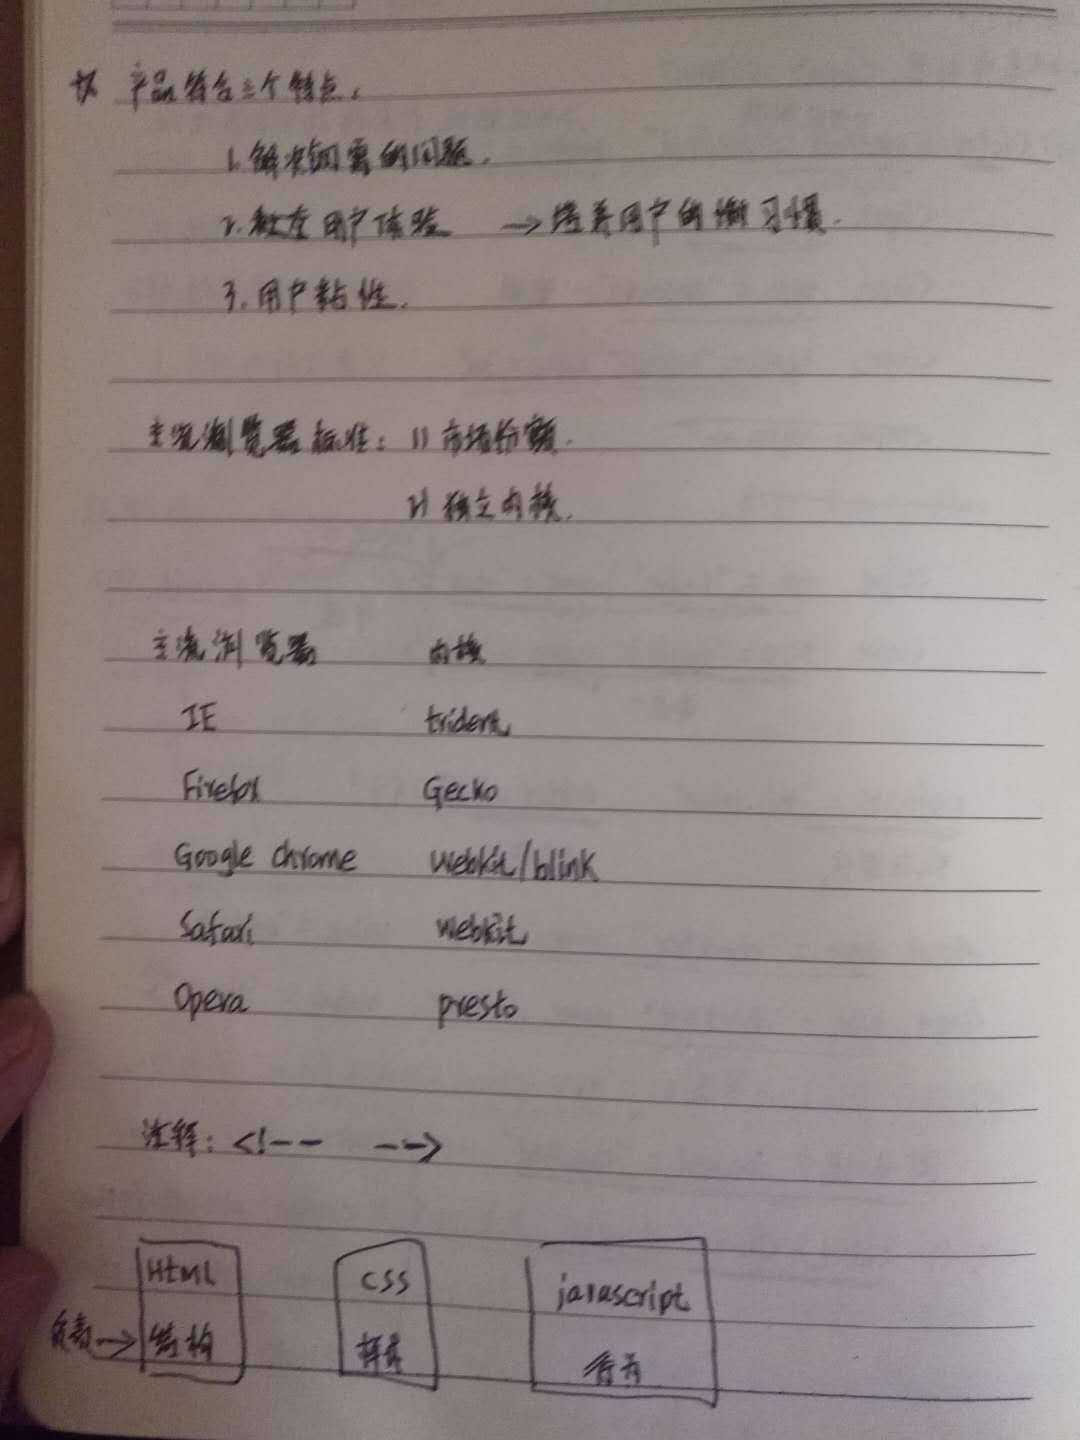 产品符合三个特点.
1. 解决刚需的问题.
2. 教在用户体验 → 培养用户的懒习惯.
3. 用户粘性.
主流浏览器标准: 1) 市场份额.
2) 独立内核.
主流浏览器 内核
IE trident
Firefox Gecko
Google chrome webkit/blink
Safari webkit
Opera presto
注释: <!-- -->
Html CSS javascript
负责→ 结构 样式 行为